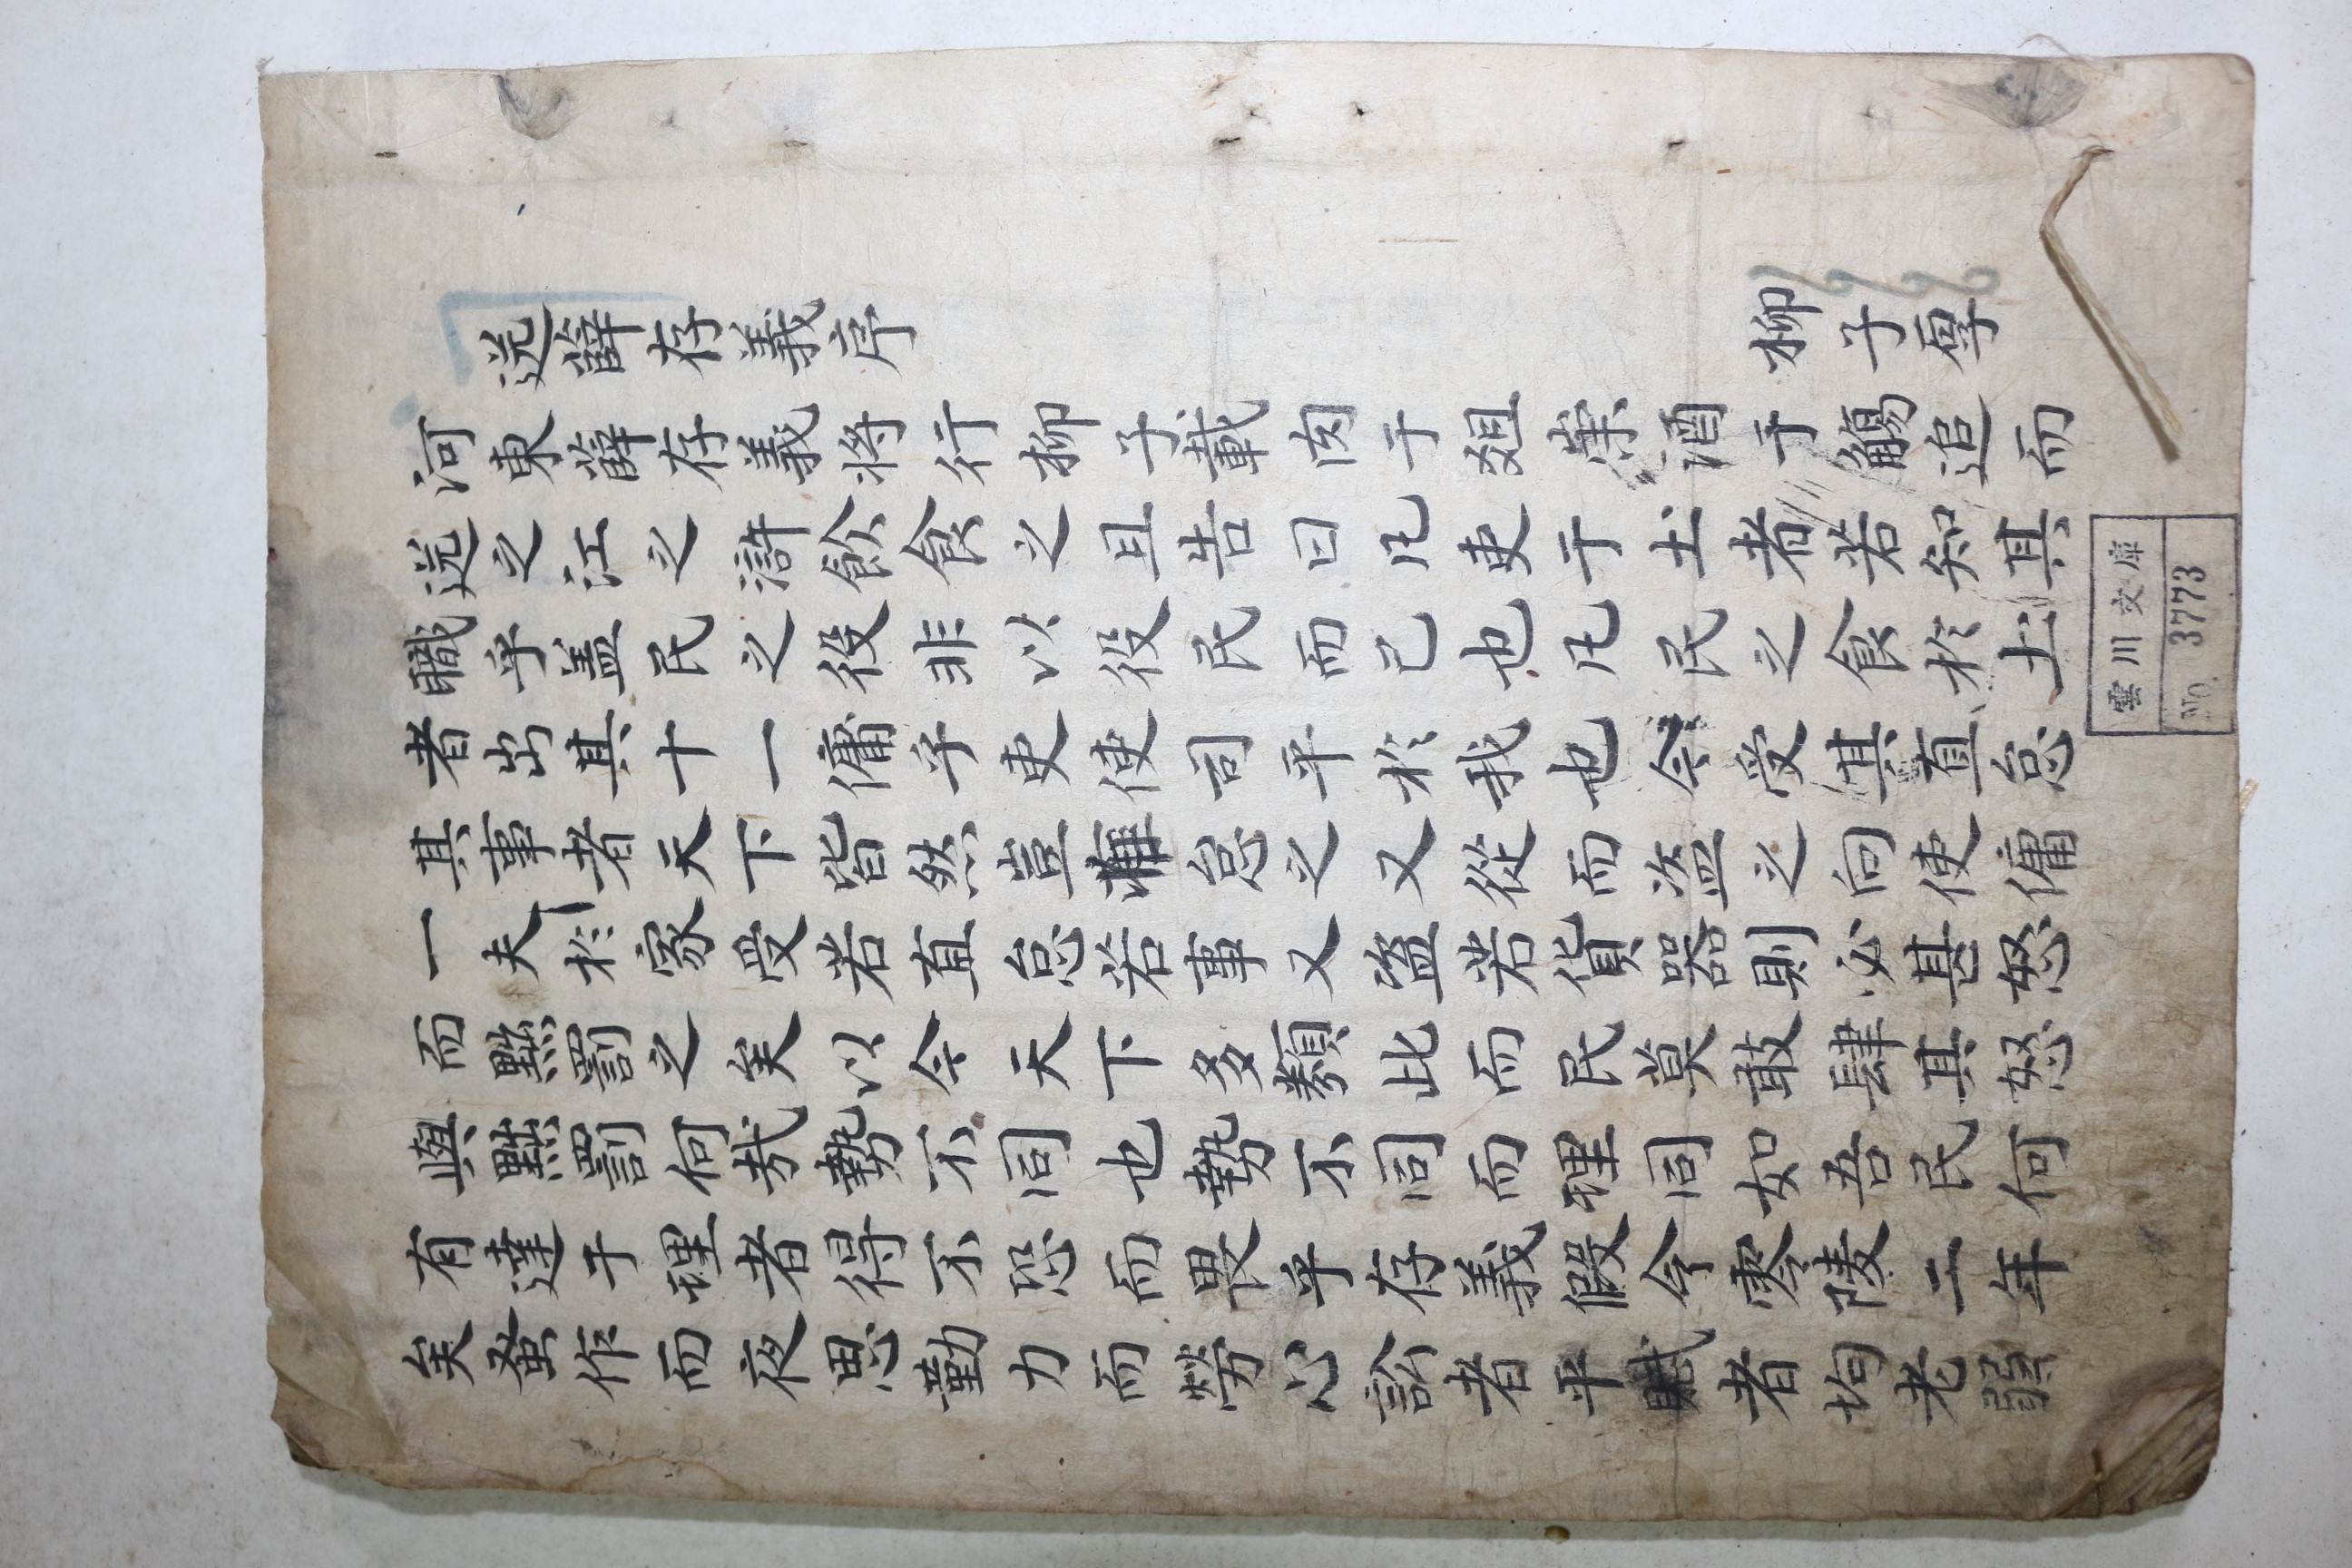 送薛存義序 柳子厚
河東薛存義將行柳子載肉于俎崇酒于觴追而
送之江之滸飮食之且告曰凡吏于土者若知其
職乎盖民之役非以役民而已也凡民之食於土
者出其十一傭乎吏使司平於我也今受其直怠
其事者天下皆然豈惟怠之又從而盗之向使傭
一夫於家受若直怠若事又盗若貨器則必甚怒
而黜罰之矣以今天下多類此而民莫敢肆其怒
與黜罰何哉勢不同也勢不同而理同如吾民何
有達于理者得不恐而畏乎存義假令零陵二年
矣蚤作而夜思勤力而勞心訟者平賦者均老弱
雲川文庫
No. 3773